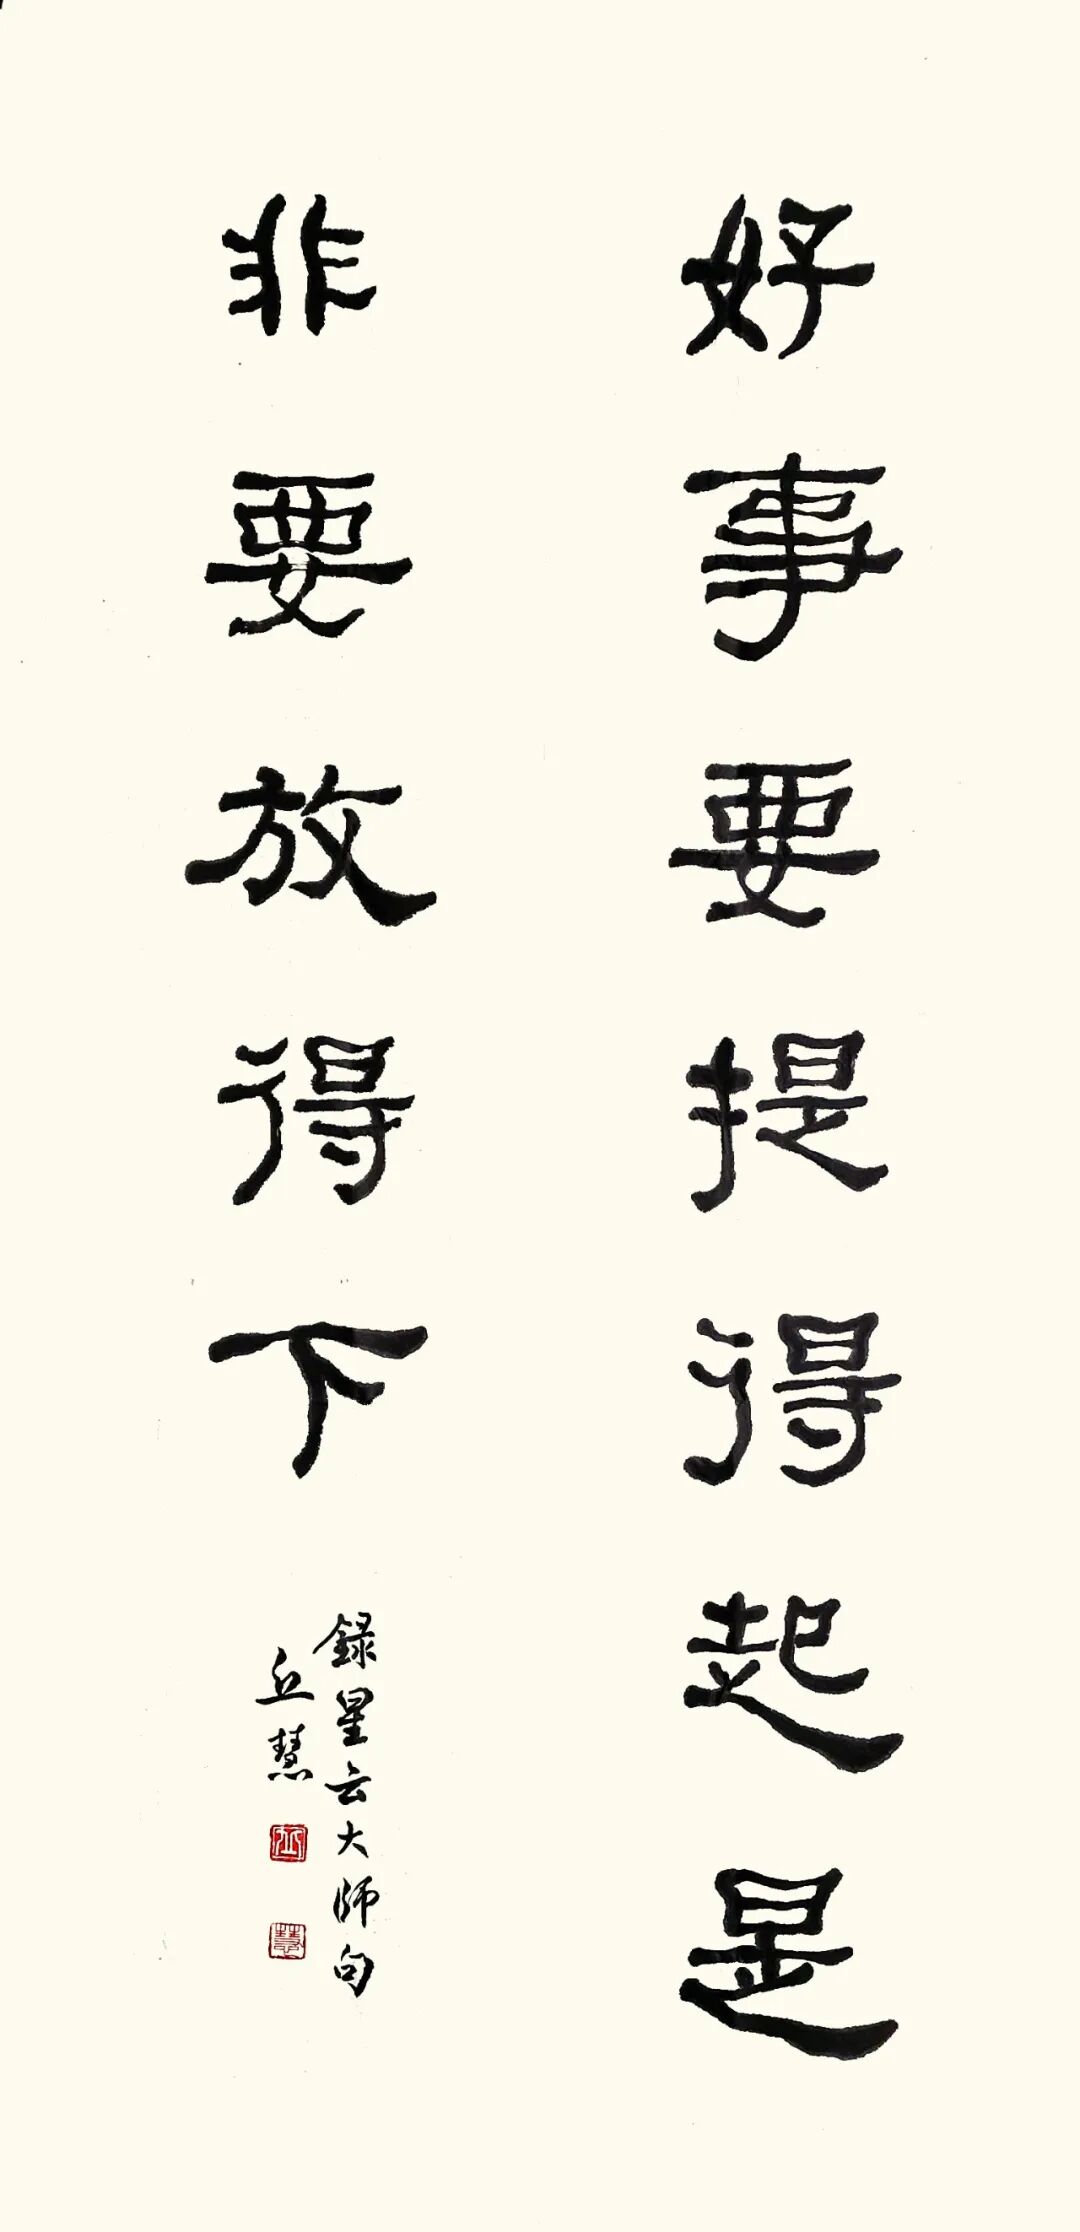 好事要提得起是
非要放得下
録星云大师句
丘慧
丘
慧